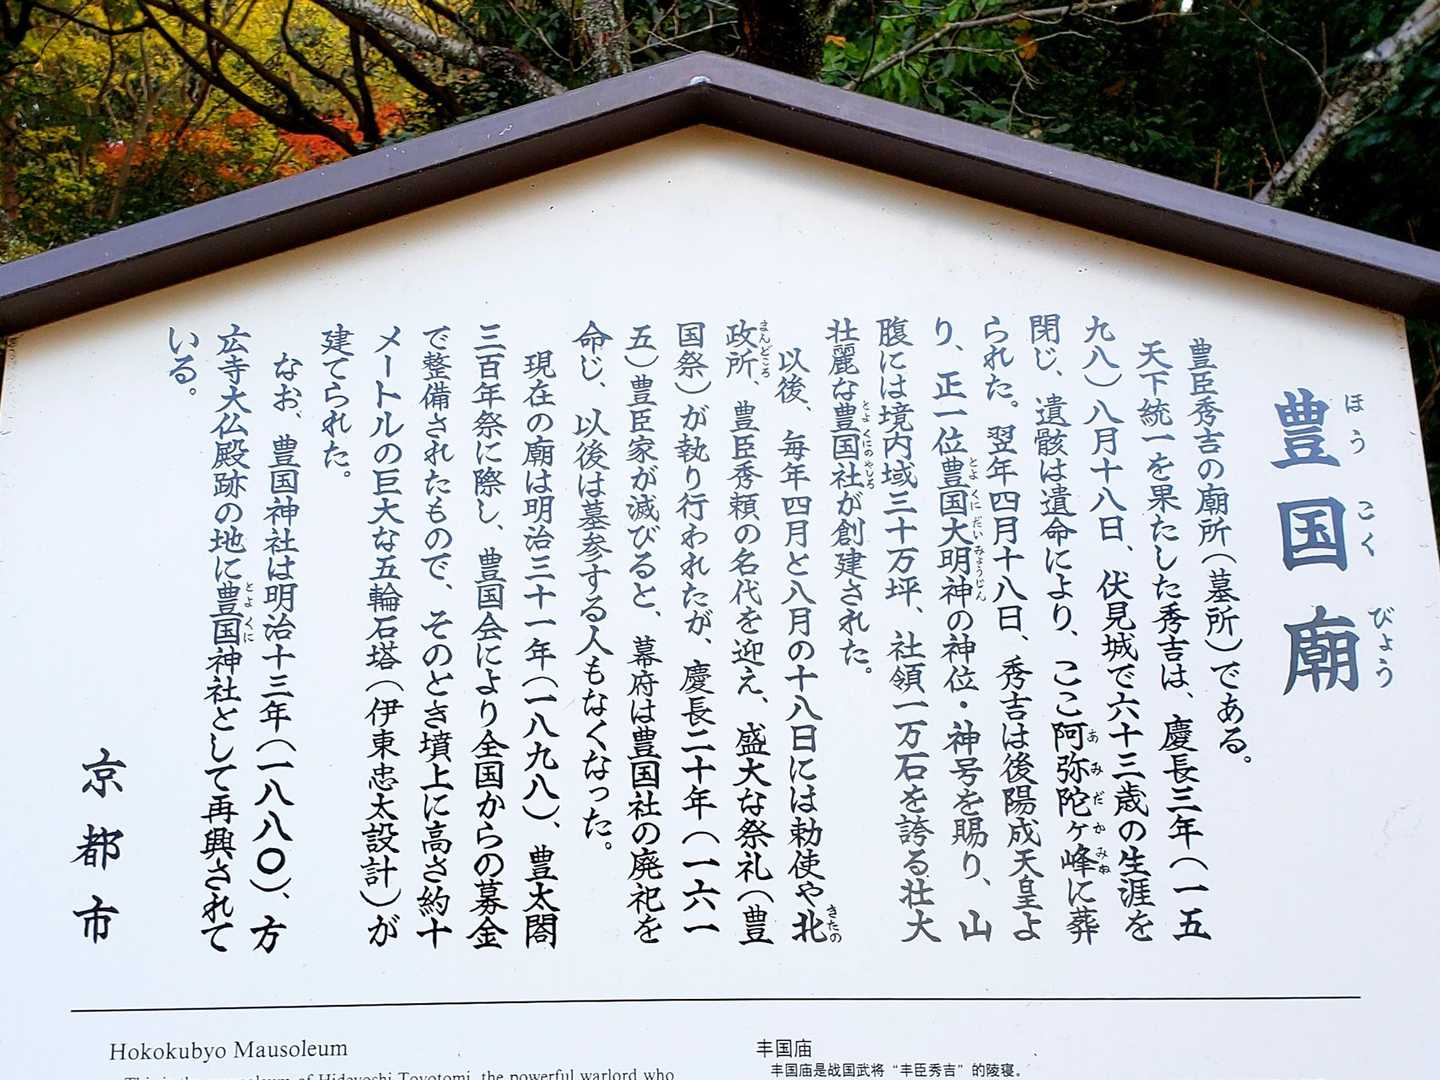 豊国廟
ほうこくびょう
豊臣秀吉の廟所（墓所）である。
天下統一を果たした秀吉は、慶長三年（一五
九八）八月十八日、伏見城で六十三歳の生涯を
閉じ、遺骸は遺命により、ここ阿弥陀ヶ峰に葬
あみだかみね
られた。翌年四月十八日、秀吉は後陽成天皇よ
り、正一位豊国大明神の神位・神号を賜り、山
とよくにだいみょうじん
腹には境内域三十万坪、社領一万石を誇る壮大
壮麗な豊国社が創建された。
とよくにのやしろ
以後、毎年四月と八月の十八日には勅使や北
きたの
政所、豊臣秀頼の名代を迎え、盛大な祭礼（豊
まんどころ
国祭）が執り行われたが、慶長二十年（一六一
五）豊臣家が滅びると、幕府は豊国社の廃祀を
命じ、以後は墓参する人もなくなった。
現在の廟は明治三十一年（一八九八）、豊太閤
三百年祭に際し、豊国会により全国からの募金
で整備されたもので、そのとき墳上に高さ約十
メートルの巨大な五輪石塔（伊東忠太設計）が
建てられた。
なお、豊国神社は明治十三年（一八八〇）、方
広寺大仏殿跡の地に豊国神社として再興されて
とよくに
いる。
京都市
Hokokubyo Mausoleum
This is the mausoleum of Hideyoshi Toyotomi, the powerful warlord who
丰国庙
丰国庙是战国武将“丰臣秀吉”的陵寝。